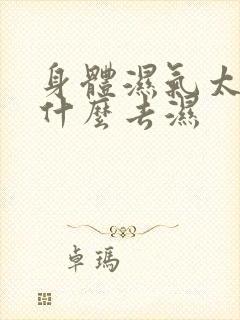 身體濕氣太
什麼去濕
卓瑪